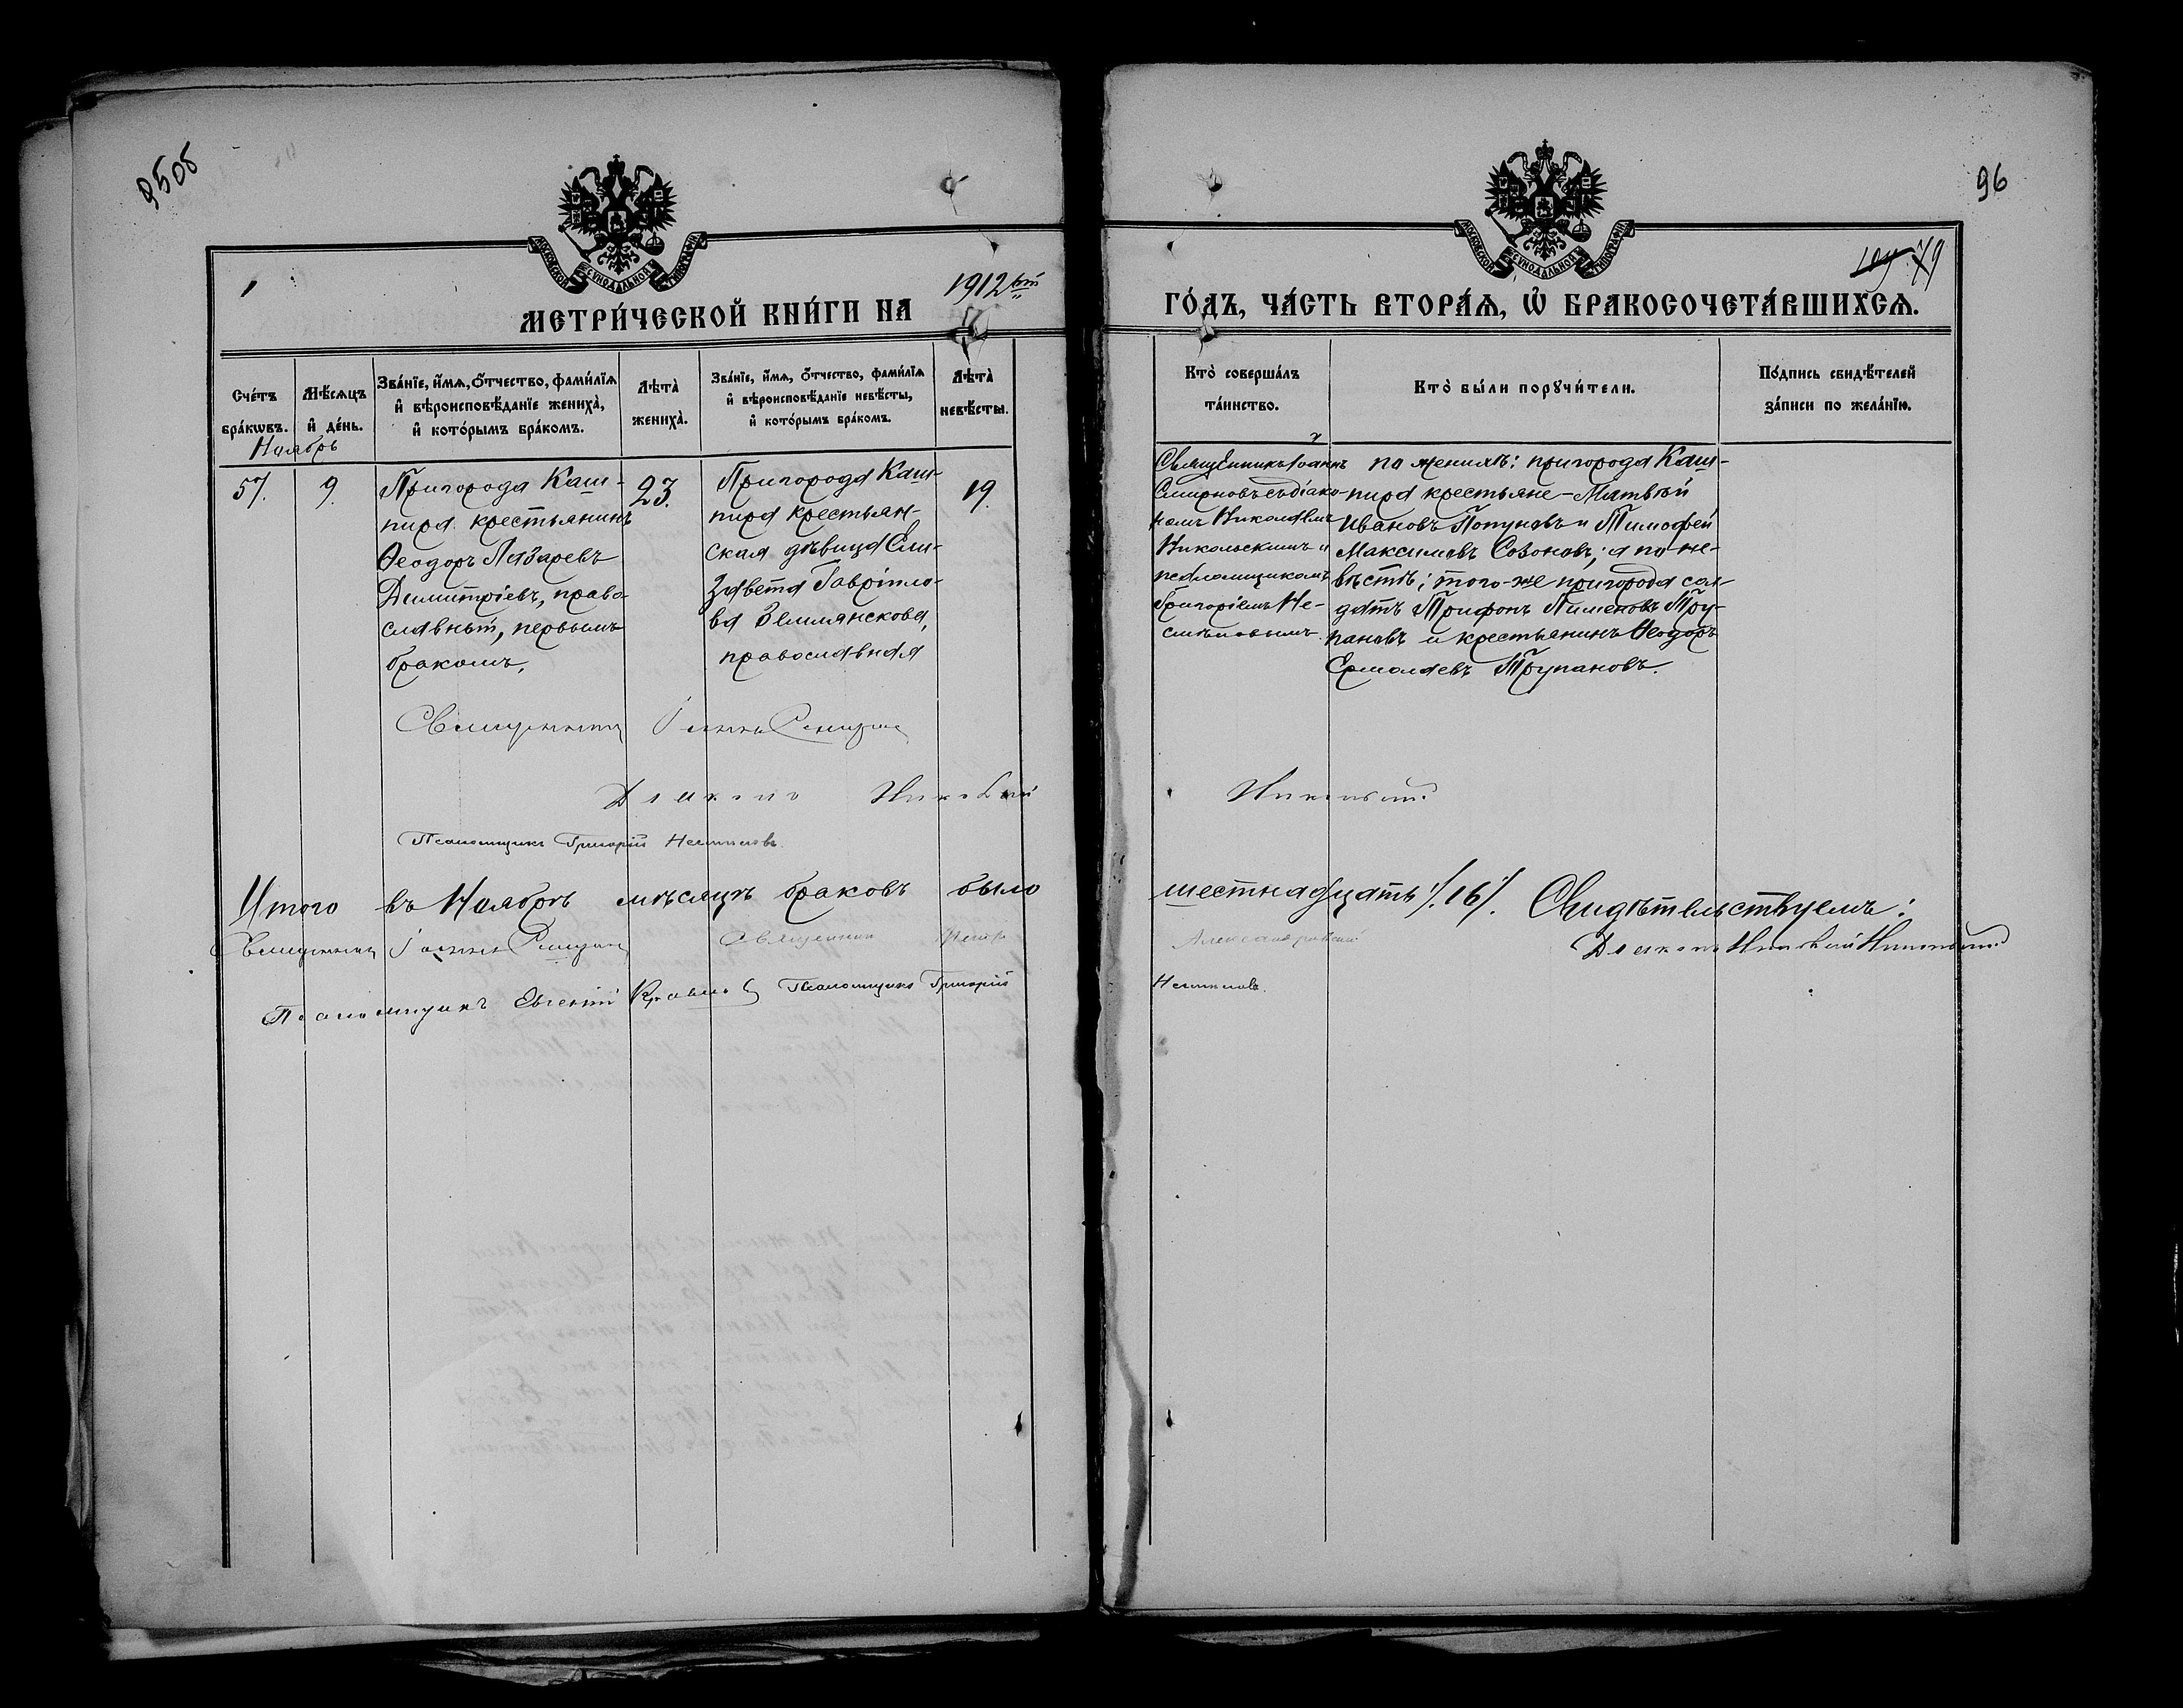 95об
96
МОСКОВСКОЙ СѴНОДАЛЬНОЙ ТИПОГРАФІИ
МОСКОВСКОЙ СѴНОДАЛЬНОЙ ТИПОГРАФІИ
79
МЕТРИ́ЧЕСКОЙ КНИ́ГИ НА 1912ый ГО́ДЪ, ЧА́СТЬ ВТОРА́Ѧ, Ѿ БРАКОСОЧЕТА́ВШИХСѦ.
Сче́тъ бра́кѡвъ.
Мѣ́сѧцъ и҆ де́нь.
Зва́нїе, и҆́мѧ, ѻ҆́тчество, фами́лїѧ
и҆ вѣроисповѣ́данїе жениха̀,
и҆ кото́рымъ бра́комъ.
Лѣта̀ жениха̀.
Зва́нїе, и҆́мѧ, ѻ҆́тчество, фами́лїѧ
и҆ вѣроисповѣ́данїе невѣ́сты,
и҆ кото́рымъ бра́комъ.
Лѣта̀ невѣ́сты.
Кто̀ соверша́лъ
та́инство.
Кто̀ бы́ли порꙋчи́тели.
По́дпись свидѣ́телей
за́писи по жела́нїю.
Ноябрь
57.
9.
Пригорода Каш-
пира крестьянинъ
Ѳеодоръ Лазаревъ
Димитріевъ, право-
славный, первымъ
бракомъ,
23.
Пригорода Каш-
пира крестьян-
ская дѣвица Ели-
завета Гавріило-
ва Землянскова,
православная
19.
Священникъ Іоаннъ
Смирновъ съ діако-
номъ Николаемъ
Никольскимъ и
псаломщикомъ
Григоріемъ Не-
смѣловымъ.
по женихѣ: пригорода Каш-
пира крестьяне - Матвѣй
Ивановъ Попуновъ и Тимофей
Максимовъ Созоновъ; а по не-
вѣстѣ; того-же пригорода сол-
датъ Трифонъ Пименовъ Тру-
пановъ и крестьянинъ Ѳеодоръ
Ермолаевъ Трупановъ.
Священникъ Іоаннъ
Діаконъ Николай Никольскій
Псаломщикъ Григорій Несмѣловъ.
Итого въ Ноябрѣ мѣсяцѣ браковъ было шестнадцать /16/. Свидѣтельствуемъ:
Священникъ Іоаннъ
Священникъ Петръ Александровскій
Діаконъ Николай Никольскій
Псаломщикъ Евгеній Псаломщикъ Григорій Несмѣловъ.